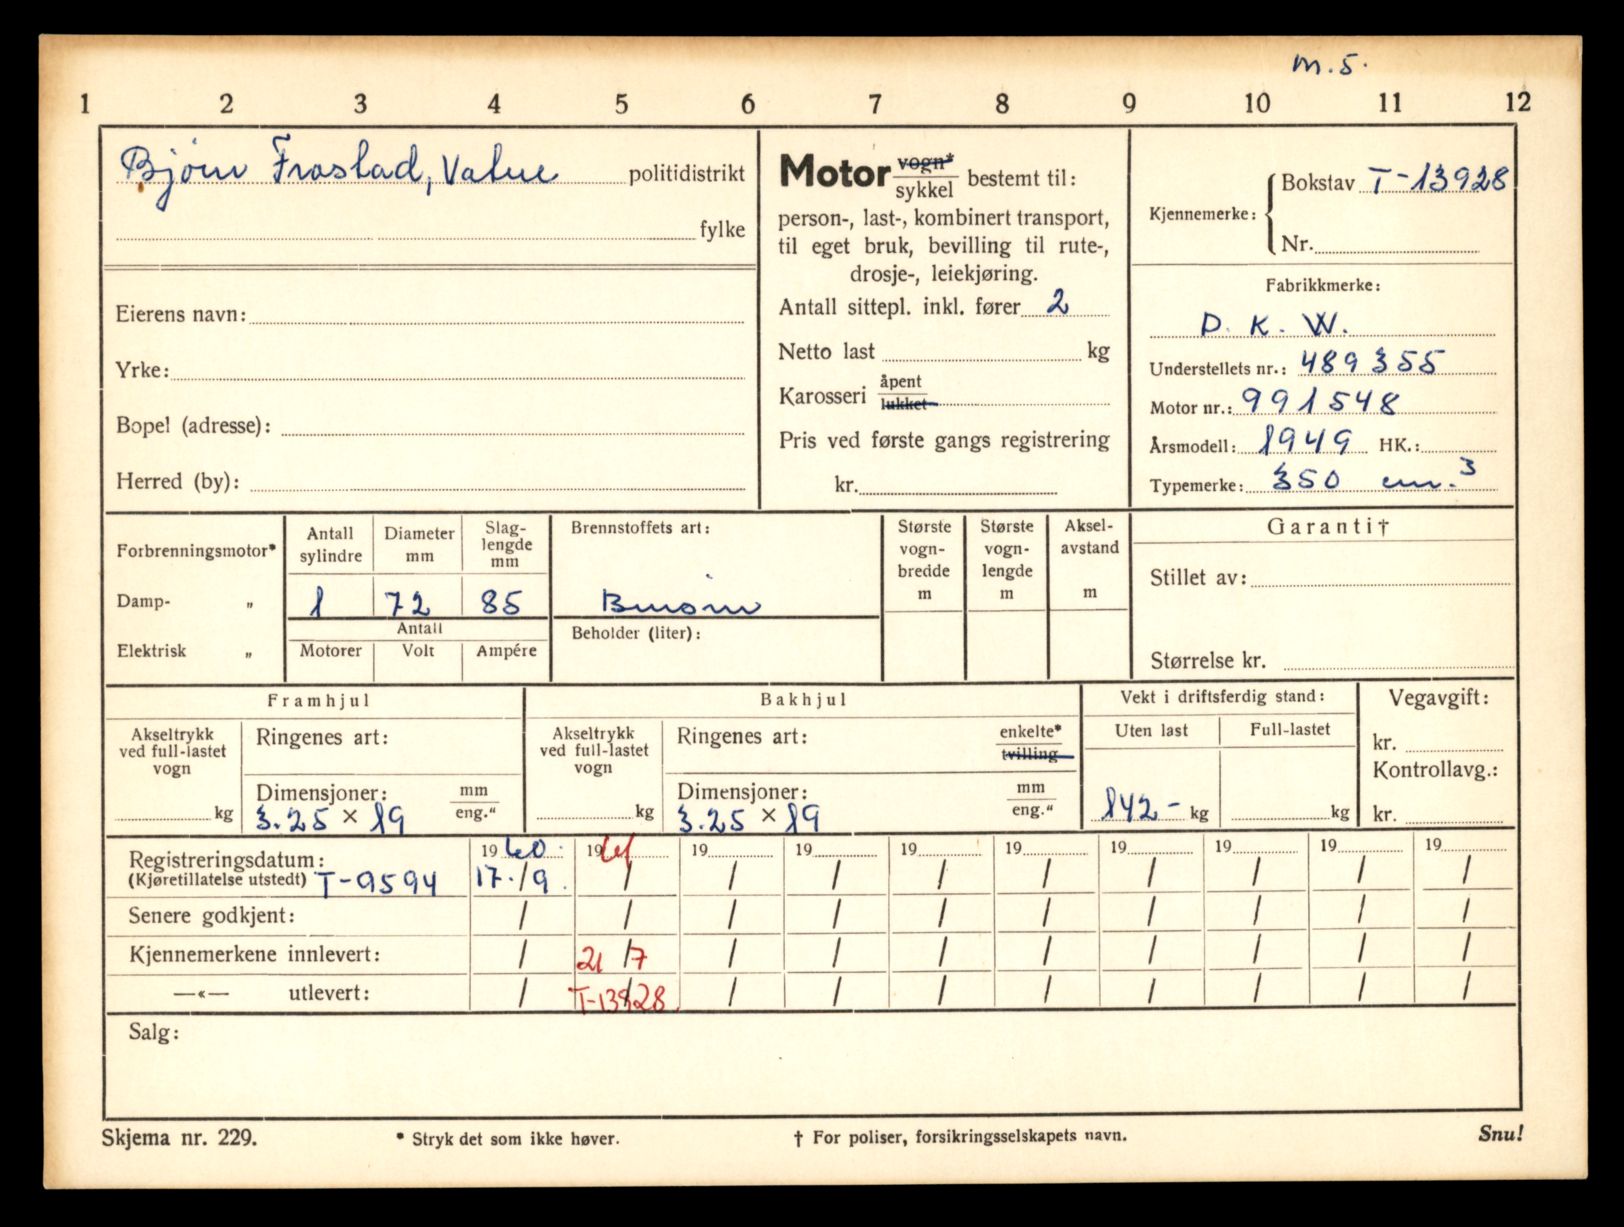 m.5.
1 2 3 4 5 6 7 8 9 10 11 12
Bjørn Frostad, Vatne politidistrikt
fylke
Eierens navn:
Yrke:
Bopel (adresse):
Herred (by):
Motor vogn*
sykkel bestemt til:
person-, last-, kombinert transport,
til eget bruk, bevilling til rute-,
drosje-, leiekjøring.
Antall sittepl. inkl. fører 2
Netto last kg
Karosseri åpent
lukket
Pris ved første gangs registrering
kr.
Kjennemerke: { Bokstav T-13928
Nr.
Fabrikkmerke:
D. K. W.
Understellets nr.: 489355
Motor nr.: 991548
Årsmodell: 1949 HK.:
Typemerke: 350 cm.3
Forbrenningsmotor*
Damp- „
Elektrisk „
Antall sylindre Diameter mm Slag-lengde mm
1 72 85
Antall
Motorer Volt Ampére
Brennstoffets art:
Bensin
Beholder (liter):
Største vogn-bredde m
Største vogn-lengde m
Aksel-avstand m
Garanti†
Stillet av:
Størrelse kr.
Framhjul
Akseltrykk ved full-lastet vogn
kg
Ringenes art:
Dimensjoner: mm
3.25 × 19 eng.“
Bakhjul
Akseltrykk ved full-lastet vogn
kg
Ringenes art: enkelte*
tvilling
Dimensjoner: mm
3.25 × 19 eng.“
Vekt i driftsferdig stand:
Uten last Full-lastet
142- kg kg
Vegavgift:
kr.
Kontrollavg.:
kr.
Registreringsdatum: 19 60. 19 61 19 19 19 19 19 19 19 19
(Kjøretillatelse utstedt) T-9594 17./9. / / / / / / / / /
Senere godkjent: / / / / / / / / / /
Kjennemerkene innlevert: / 21/7 / / / / / / / /
—«— utlevert: / T-13928. / / / / / / / /
Salg:
Skjema nr. 229. * Stryk det som ikke høver. † For poliser, forsikringsselskapets navn. Snu!